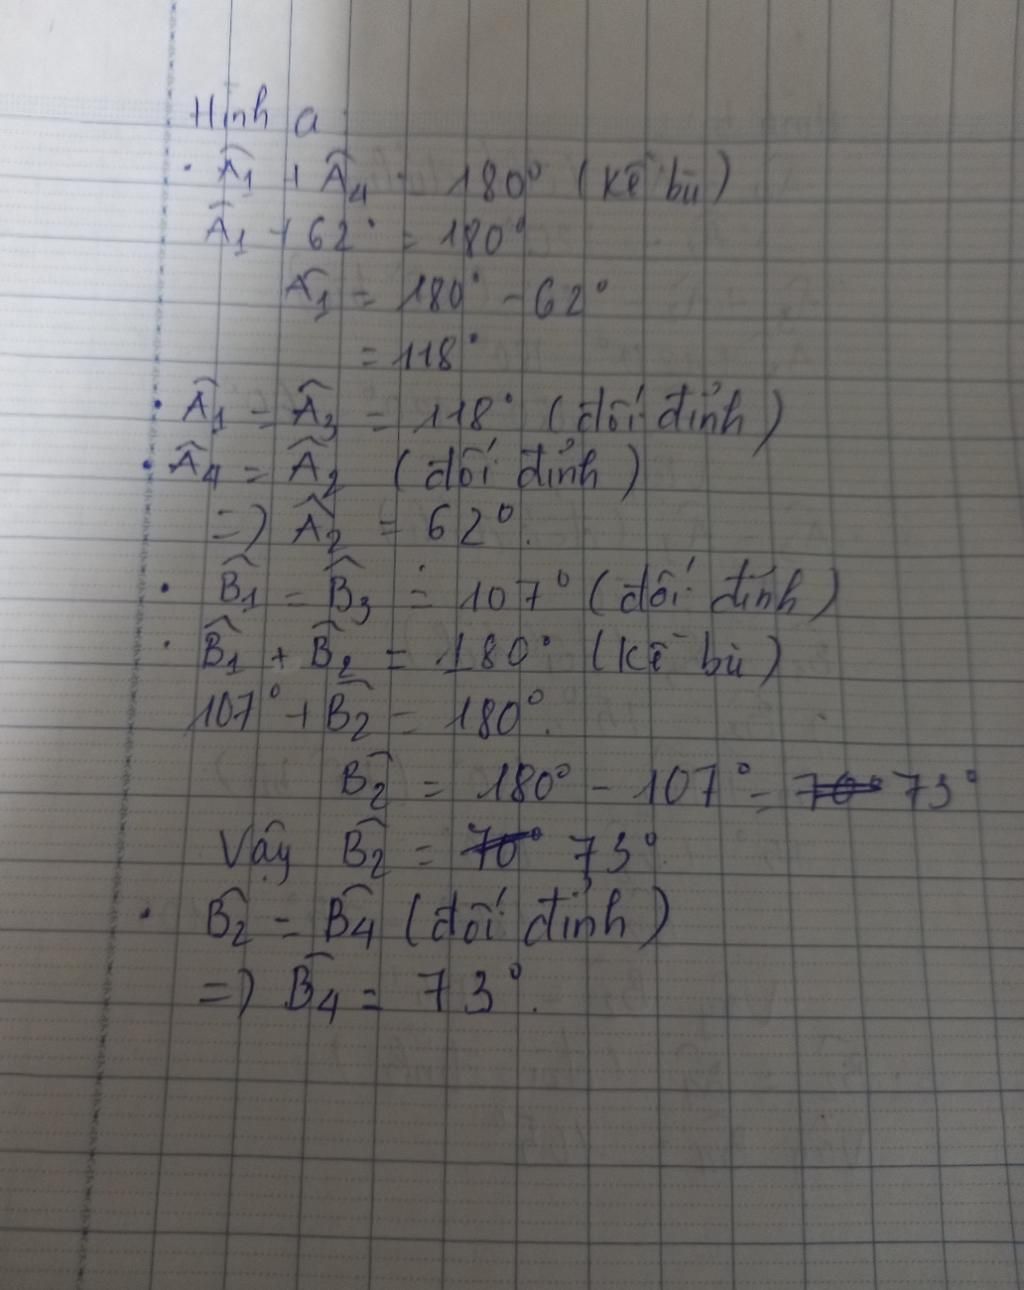 Hình a
. Â₁ + Â₄ = 180° (kề bù)
Â₁ + 62° = 180°
Â₁ = 180° - 62°
= 118°
. Â₁ = Â₃ = 118° (đối đỉnh)
. Â₄ = Â₂ (đối đỉnh)
=) Â₂ = 62°.
. B̂₁ = B̂₃ = 107° (đối đỉnh)
. B̂₁ + B̂₂ = 180° (kề bù)
107° + B̂₂ = 180°.
B̂₂ = 180° - 107° = 70° 73°
Vậy B̂₂ = 70° 73°.
. B̂₂ = B̂₄ (đối đỉnh)
=) B̂₄ = 73°.